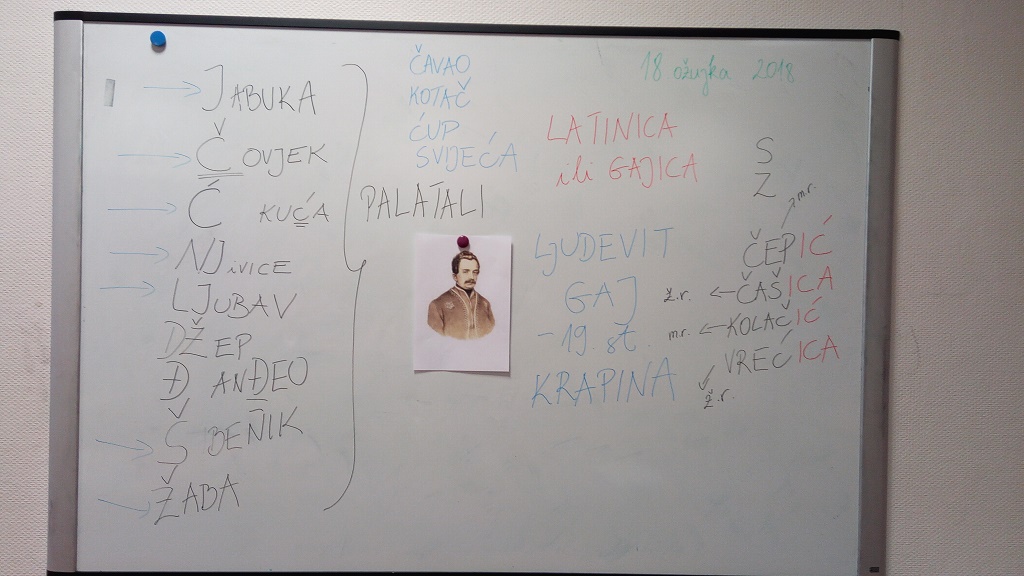 JABUKA
ČOVJEK
Ć KUĆA
NJIVICE
LJUBAV
DŽEP
Đ ANĐEO
ŠIBENIK
ŽABA
PALATALI
ČAVAO
KOTAČ
ĆUP
SVIJEĆA
LATINICA
ili GAJICA
LJUDEVIT
GAJ
-19. st.
KRAPINA
18 ožujka 2018
S
Z
m.r.
ČEPIĆ
ž.r. ← ČAŠICA
m.r. ← KOLAČIĆ
VREĆICA
ž.r.